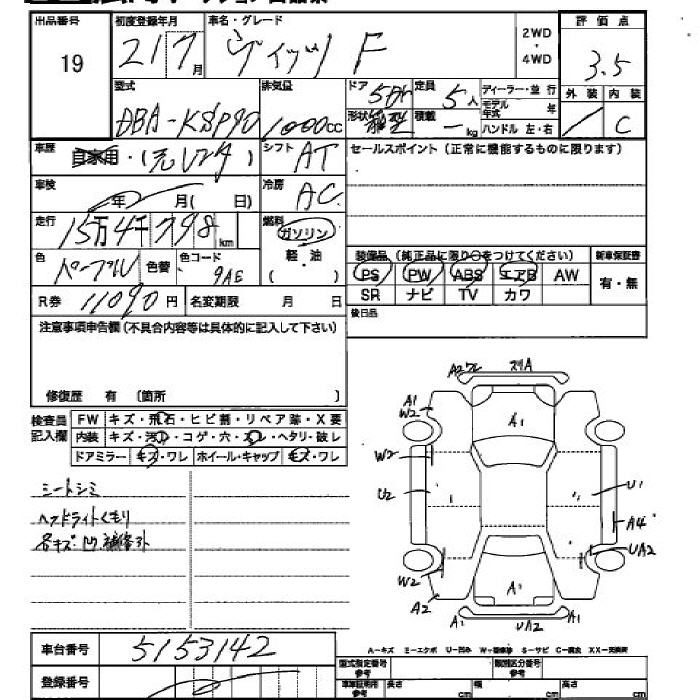 出品番号 初度登録年月 車名・グレード 評価点
19 21 7月 ヴィッツ F 2WD・4WD 3.5
型式 排気量 ドア 5Dr 定員 5人 ディーラー・並行 外装 内装
DBA-KSP90 1000cc 形状 箱型 積載 kg モデル年式 年 ハンドル 左・右 C
車歴 自家用・(元レンタ) シフト AT セールスポイント (正常に機能するものに限ります)
車検 年 月( 日) 冷房 AC
走行 15万4千798km 燃料 ガソリン 軽・油 ( )
色 パープル 色替 色コード 9AE
装備品 (純正品に限り○をつけてください) 新車保証書
PS PW ABS エアB AW 有・無
SR ナビ TV カワ
R券 11090円 名変期限 月 日 後日品
注意事項申告欄 (不具合内容等は具体的に記入して下さい)
修復歴 有 〔箇所 〕
検査員記入欄 FW キズ・飛石・ヒビ割・リペア跡・X要
内装 キズ・汚れ・コゲ・穴・スレ・ヘタリ・破レ
ドアミラー キズ・ワレ ホイール・キャップ キズ・ワレ
シートシミ
ヘッドライトくもり
各キズ・凹 補修跡
A2ワレ スリA
A1
W2
A1
W2
U2 U1
A4
UA2
W2
A2 A1
A2 UA2 A1
A-キズ E-エクボ U-凹み W-補修跡 S-サビ C-腐食 XX-交換済
車台番号 5153142
登録番号
型式指定番号 参考 類別区分番号 参考
車車証明用 参考 長さ cm 幅 cm 高さ cm